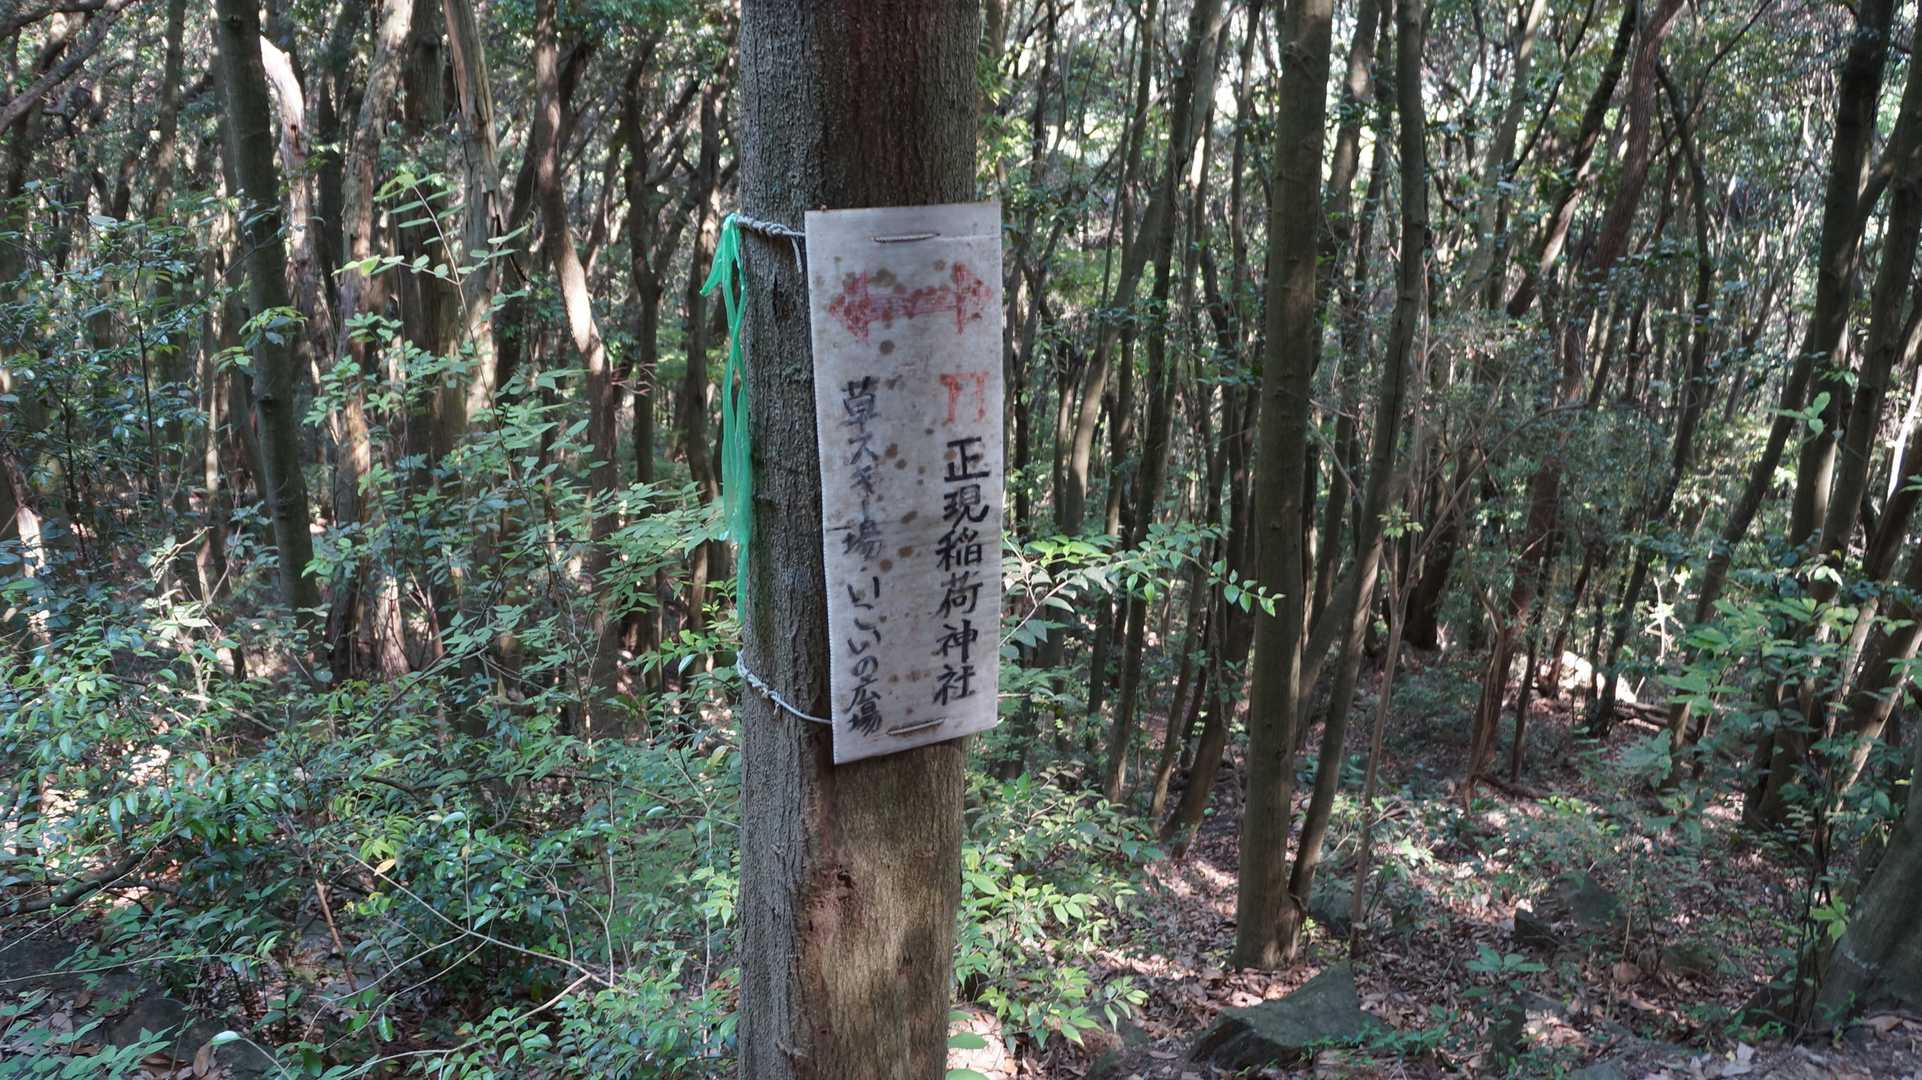 正現稲荷神社
草スキー場・いこいの広場